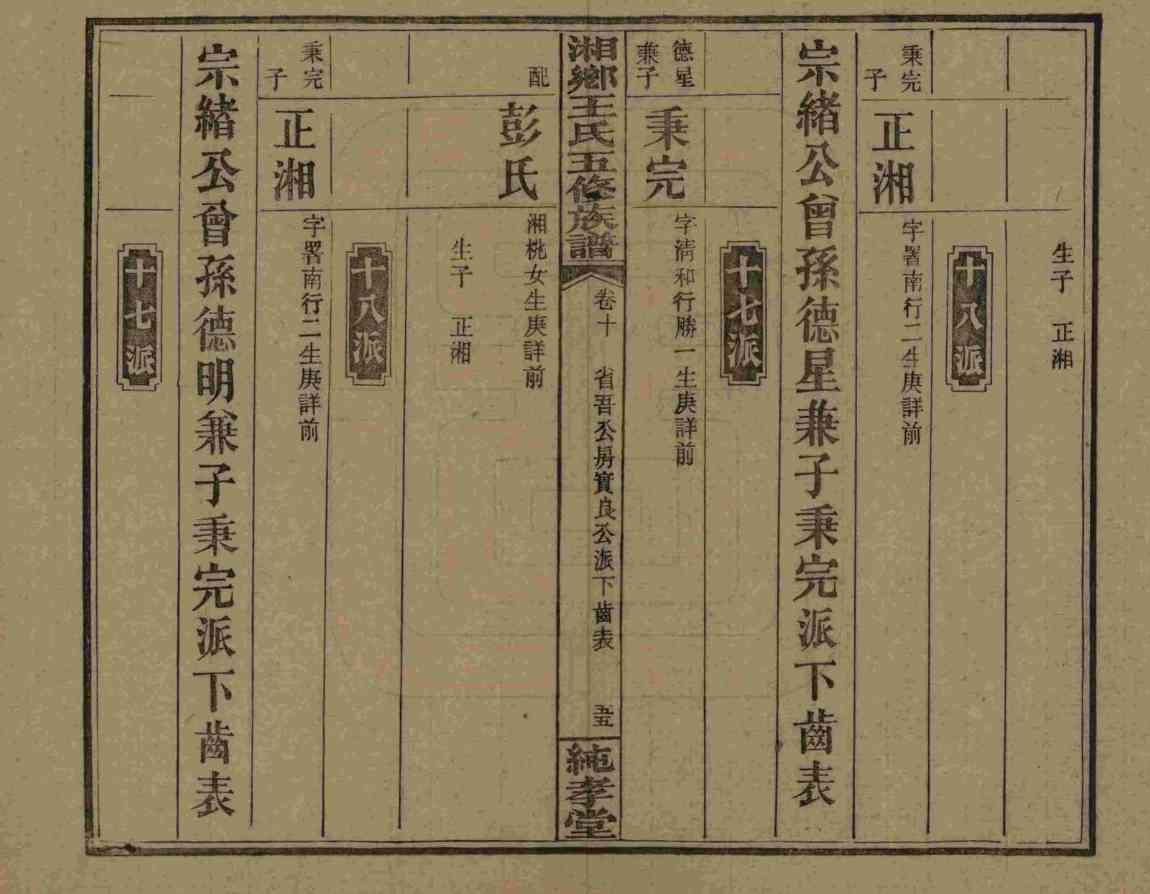 生子 正湘
十八派
秉完子
正湘
字署南行二生庚詳前
宗緒公曾孫德星兼子秉完派下齒表
十七派
德星兼子
秉完
字淸和行勝一生庚詳前
湘鄉王氏五修族譜
卷十 省吾公房實良公派下齒表
五五
純孝堂
配
彭氏
湘桃女生庚詳前
生子 正湘
十八派
秉完子
正湘
字署南行二生庚詳前
宗緒公曾孫德明兼子秉完派下齒表
十七派